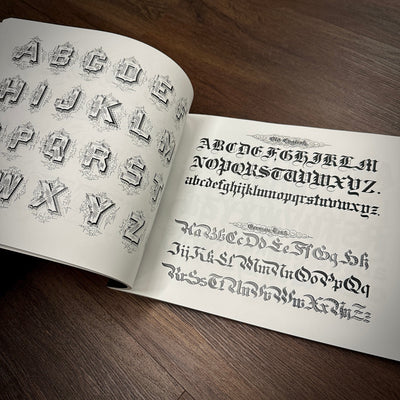 A B C D E
H I J K L
P Q R S T
W X Y Z
Old English.
ABCDEFGHIJKLM
NOPQRSTUVWXYZ.
abcdefghijklmnopqrstuvwxyz.
German Text.
Aa Bb Cc Dd Ee Ff Gg Hh
Ii Jj Kk Ll Mm Nn Oo Pp Qq
Rr Ss Tt Uu Vv Ww Xx Yy Zz